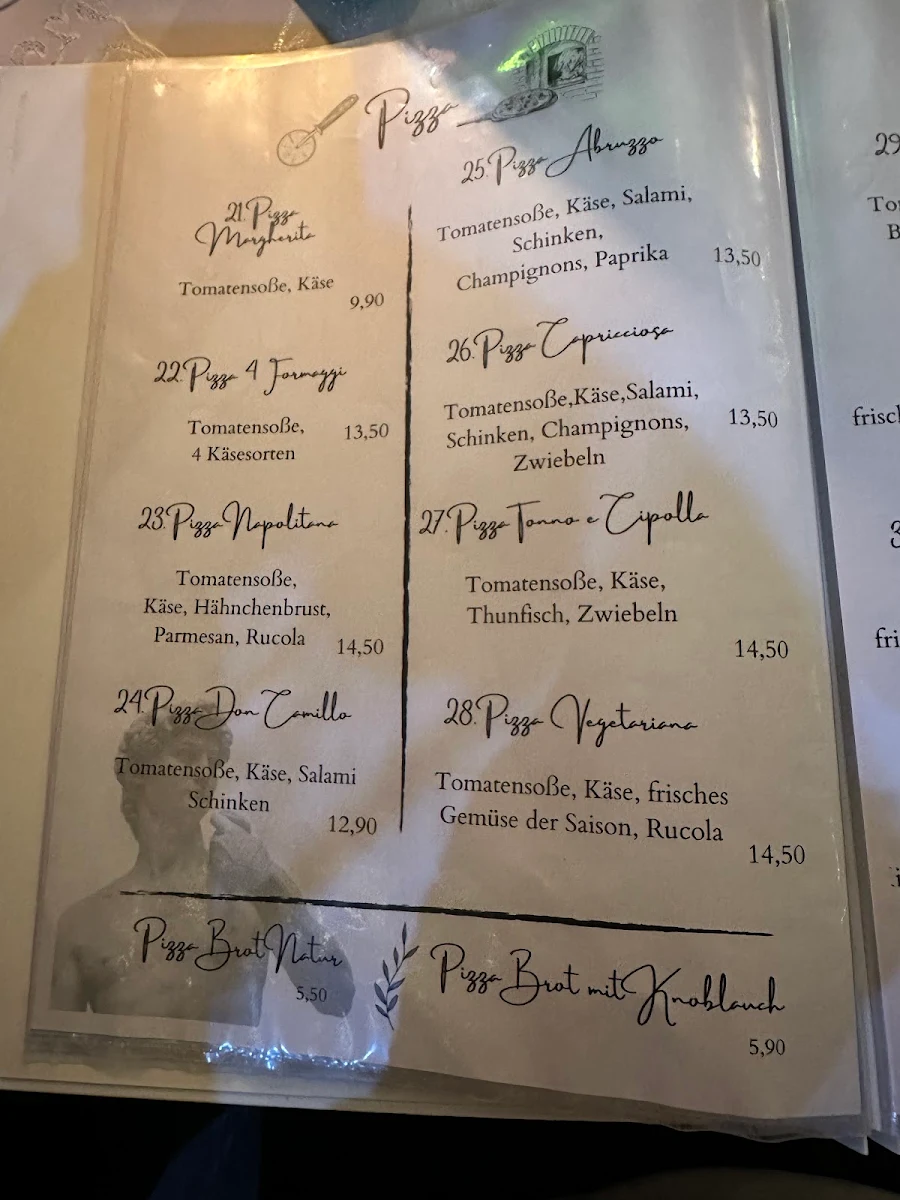 Pizza
21.Pizza
Margherita
Tomatensoße, Käse
9,90
22.Pizza 4 Formaggi
Tomatensoße,
4 Käsesorten
13,50
23.Pizza Napolitana
Tomatensoße,
Käse, Hähnchenbrust,
Parmesan, Rucola
14,50
24.Pizza Don Camillo
Tomatensoße, Käse, Salami
Schinken
12,90
25.Pizza Abruzzo
Tomatensoße, Käse, Salami,
Schinken,
Champignons, Paprika
13,50
26.Pizza Capricciosa
Tomatensoße,Käse,Salami,
Schinken, Champignons,
Zwiebeln
13,50
27.Pizza Tonno e Cipolla
Tomatensoße, Käse,
Thunfisch, Zwiebeln
14,50
28.Pizza Vegetariana
Tomatensoße, Käse, frisches
Gemüse der Saison, Rucola
14,50
Pizza Brot Natur
5,50
Pizza Brot mit Knoblauch
5,90
29